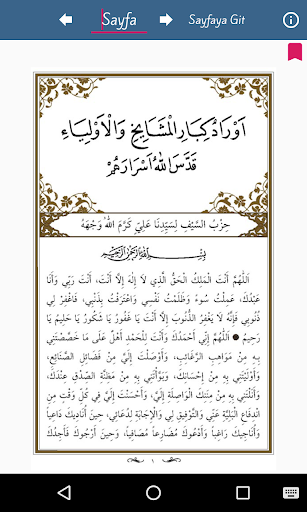 Sayfa
Sayfaya Git
اَوْرَادُ كِبَارِ الْمَشَايِخِ وَالْاَوْلِيَاءِ
قَدَّسَ اللهُ اَسْرَارَهُمْ
حِزْبُ السَّيْفِ لِسَيِّدِنَا عَلِيٍّ كَرَّمَ اللهُ وَجْهَهُ
بِسْمِ اللهِ الرَّحْمٰنِ الرَّحِيمِ
اَللّٰهُمَّ اَنْتَ الْمَلِكُ الْحَقُّ الَّذِي لَا إِلٰهَ إِلَّا أَنْتَ، أَنْتَ رَبِّي وَأَنَا
عَبْدُكَ، عَمِلْتُ سُوءً وَظَلَمْتُ نَفْسِي وَاعْتَرَفْتُ بِذَنْبِي، فَاغْفِرْ لِي
ذُنُوبِي فَإِنَّهُ لَا يَغْفِرُ الذُّنُوبَ إِلَّا أَنْتَ، يَا غَفُورُ يَا شَكُورُ يَا حَلِيمُ يَا
رَحِيمُ ● اَللّٰهُمَّ إِنِّي أَحْمَدُكَ وَأَنْتَ لِلْحَمْدِ أَهْلٌ عَلَى مَا خَصَّصْتَنِي
بِهِ مِنْ مَوَاهِبِ الرَّغَائِبِ، وَأَوْصَلْتَ إِلَيَّ مِنْ فَضَائِلِ الصَّنَائِعِ،
وَأَوْلَيْتَنِي بِهِ مِنْ إِحْسَانِكَ، وَبَوَّأْتَنِي بِهِ مِنْ مَظِنَّةِ الصِّدْقِ عِنْدَكَ،
وَأَنَلْتَنِي بِهِ مِنْ مِنَنِكَ الْوَاصِلَةِ إِلَيَّ، وَأَحْسَنْتَ إِلَيَّ فِي كُلِّ وَقْتٍ مِنَ
الدِّفَاعِ الْبَلِيَّةِ عَنِّي وَالتَّوْفِيقِ لِي وَالْإِجَابَةِ لِدُعَائِي، حِينَ أُنَادِيكَ دَاعِياً
وَأُنَاجِيكَ رَاغِباً، وَأَدْعُوكَ مُضَارِعاً مُصَافِياً، وَحِينَ أَرْجُوكَ فَأَجِدُكَ
١